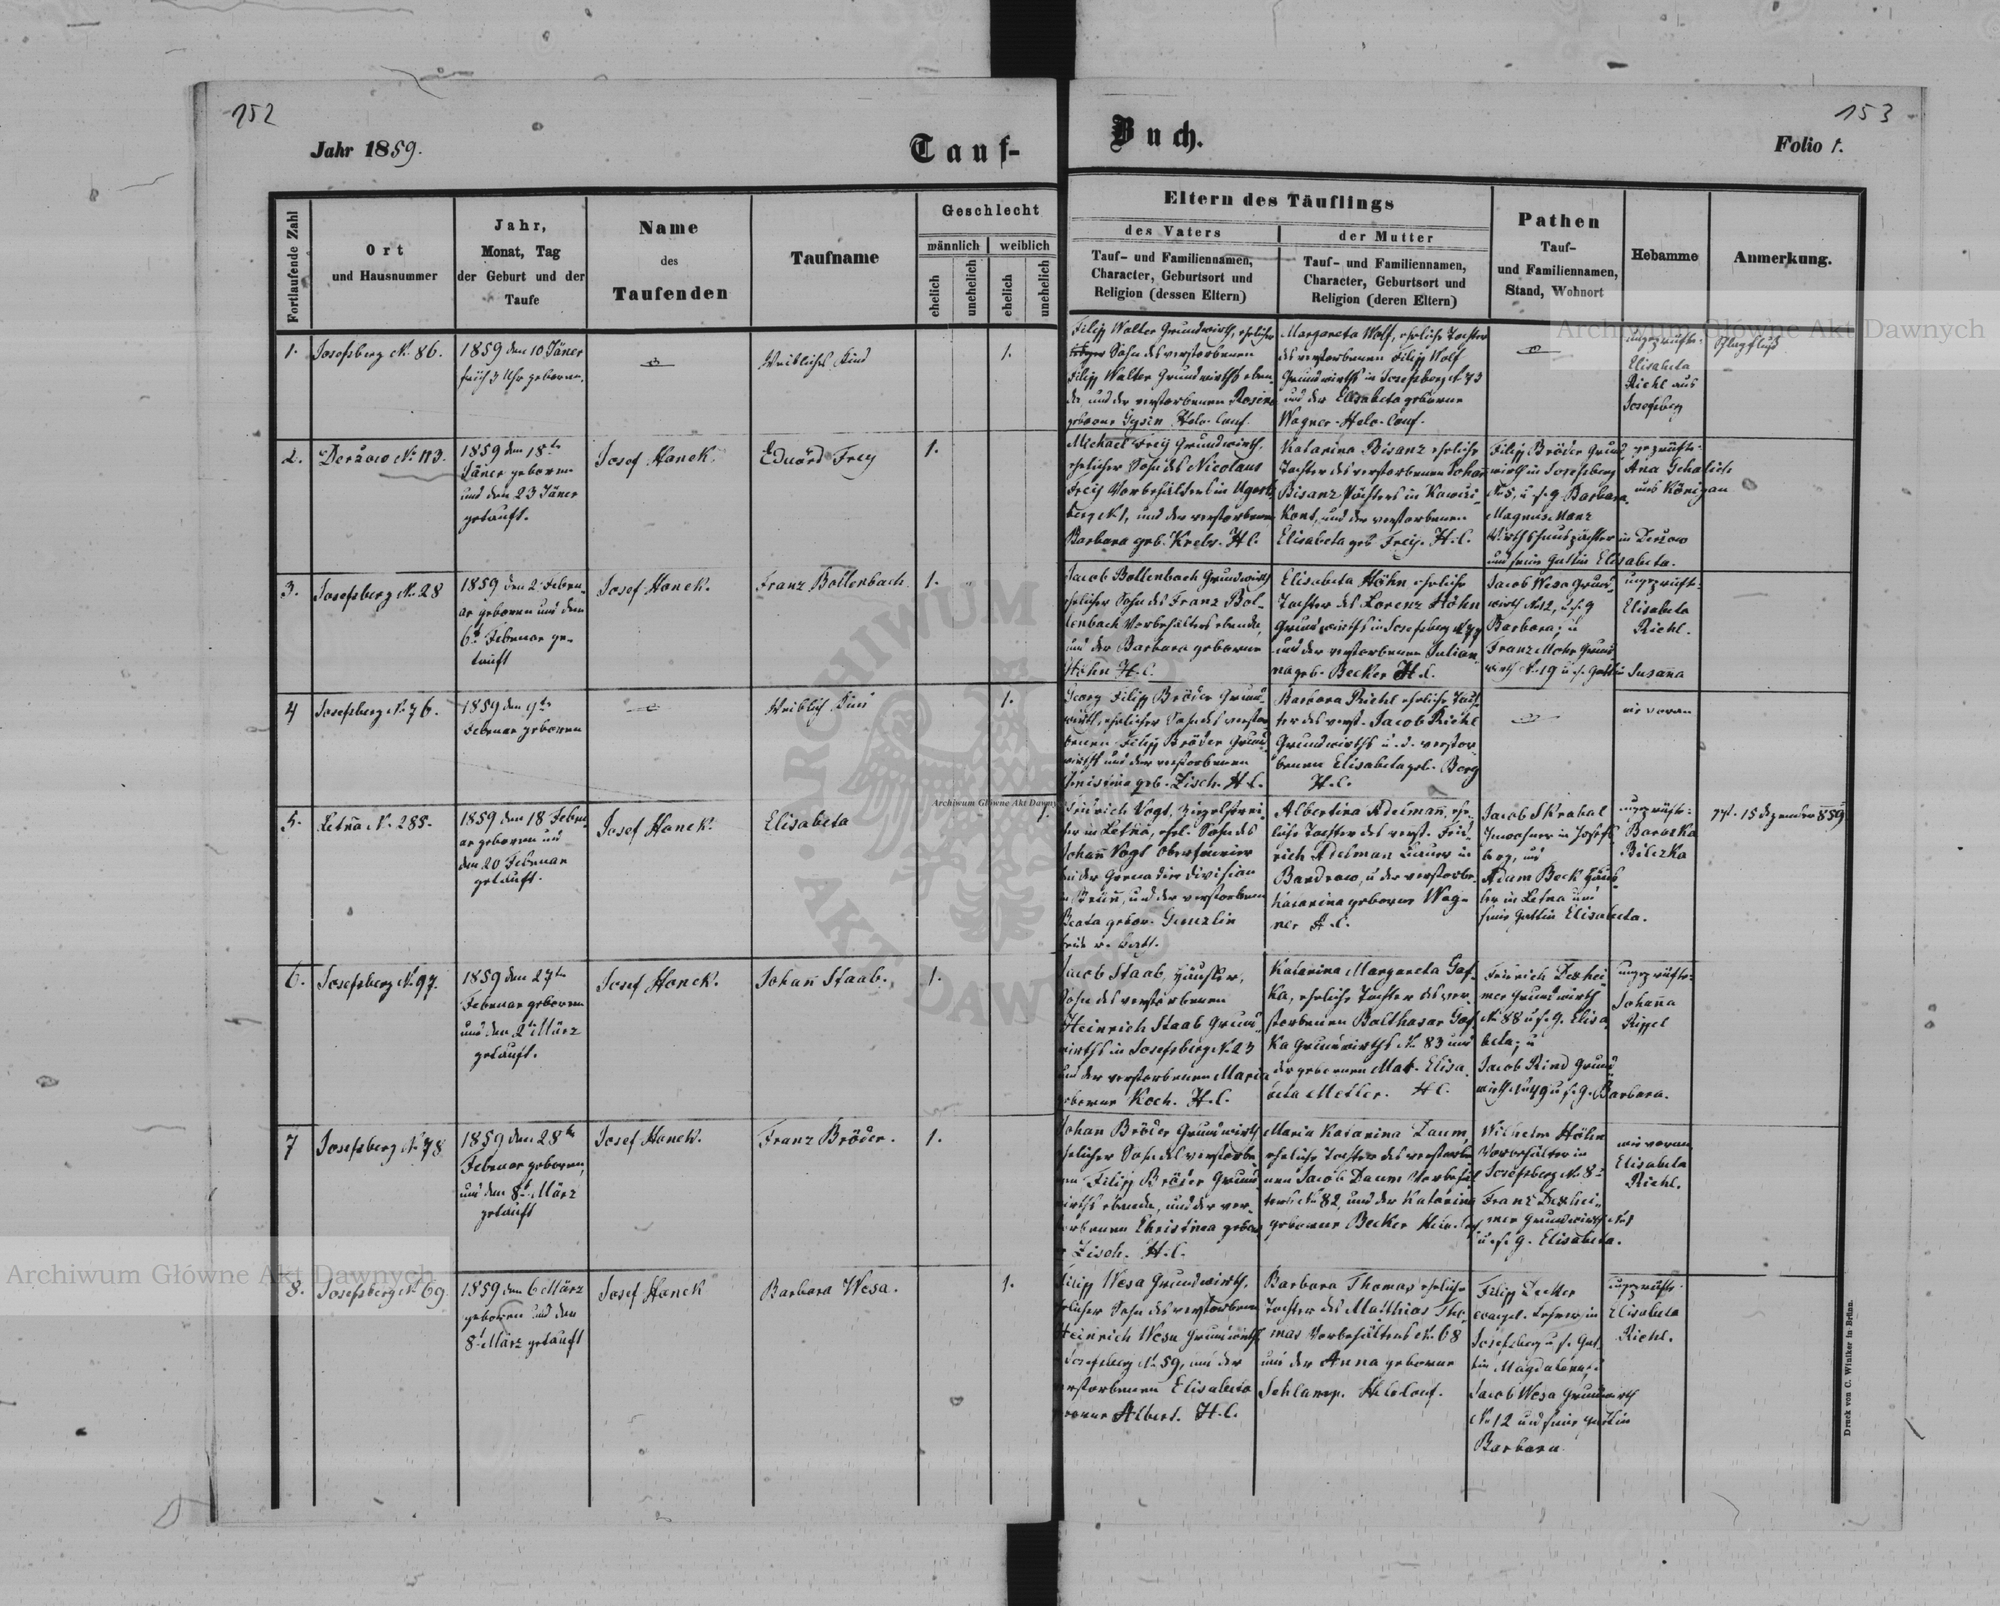 152
153
Jahr 1859.
Tauf-
Buch.
Folio 1.
Fortlaufende Zahl
Ort
und Hausnummer
Jahr,
Monat, Tag
der Geburt und der
Taufe
Name
des
Taufenden
Taufname
Geschlecht
männlich
weiblich
ehelich
unehelich
ehelich
unehelich
Eltern des Täuflings
des Vaters
Tauf- und Familiennamen,
Character, Geburtsort und
Religion (dessen Eltern)
der Mutter
Tauf- und Familiennamen,
Character, Geburtsort und
Religion (deren Eltern)
Pathen
Tauf-
und Familiennamen,
Stand, Wohnort
Hebamme
Anmerkung.
1.
Josefsberg No. 86.
1859 den 10 Jäner
früh 3 Uhr geboren.
Weibliches Kind
1.
Filipp Walter Grundwirth, ehelicher
Sohn des verstorbenen
Filipp Walter Grundwirths eben-
da, und der verstorbenen Rosina
geborne Gysin Helv. Conf.
Margareta Wolf, eheliche Tochter
des verstorbenen Filipp Wolf
Grundwirths in Josefsberg No 73
und der Elisabeta geborne
Wagner. Helv. Conf.
ungeprüfte.
Elisabeta
Riehl aus
Josefsberg
2.
Deržow No. 113.
1859 den 18ten
Jäner geboren
und den 23 Jäner
getauft.
Josef Hanek.
Eduárd Frey
1.
Michael Frey Grundwirth,
ehelicher Sohn des Nicolaus
Freÿ Vorbehälters in Ugarts-
berg No 1, und der verstorbenen
Barbara geb. Krebs. H.C.
Katarina Bisanz eheliche
Tochter des verstorbenen Johañ
Bisanz Pächters in
und der verstorbenen
Elisabeta geb Freÿ. H.C.
Filipp Bröder Grund
wirth in Josefsberg
No 5, u s. g. Barbara
Magnus Manz
Wirthshauspächter in Deržow
und seine Gattin Elisabeta.
geprüfte.
Ana
aus Königsau
3.
Josefsberg No. 28
1859 den 2 Februar
geboren und den
6ten Februar ge-
tauft
Josef Hanek.
Franz Bollenbach
1.
Jacob Bollenbach Grundwirth
ehelicher Sohn des Franz Bol-
lenbach Vorbehälters ebenda,
und der Barbara geborne
Höhn H.C.
Elisabeta Höhn eheliche
Tochter des Lorenz Höhn
Grundwirths in Josefsberg No 77
und der verstorbenen Julian-
na geb. Becker H.C.
Jacob Wesa Grund
wirth No 12, u s. g
Barbara; u
Franz Mohr Grund
wirth No. 19 u s. Gattin Susaña
ungeprüft.
Elisabeta
Riehl.
4
Josefsberg No. 76.
1859 den 9ten
Februar geboren
Weiblich Kind
1.
Georg Filipp Bröder Grund
wirth, ehelicher Sohn des verstor
benen Filipp Bröder Grund
wirths und der verstorbenen
Christina geb. Zisch. H.C.
Barbara Riehl eheliche Toch-
ter des verst. Jacob Riehl
Grundwirths u. d. verstor-
benen Elisabeta geb. Berg
H.C.
wie voran
5.
Letña No. 288.
1859 den 18 Febru
ar geboren und
den 20 Februar
getauft.
Josef Hanek.
Elisabeta
1.
Heinrich Vogt,
in Letña, ehel. Sohn des
Johañ Vogt
bei der Grenadier Division
in Brüñ, und der verstorbenen
Beata gebor.
Albertina Adelmañ, ehe-
liche Tochter des verst. Fried
rich Adelman Bauers in
Bandrow, u der verstorbe.
Katarina geborne Wag-
ner A.C.
Jacob Skrahal
Inwohner in Josefs
berg, und
Adam Beck
in Letna und
seine Gattin Elisabeta.
ungeprüfte.
Baraska
Bilezka
15 Dezember 859
6.
Josefsberg No. 97.
1859 den 27ten
Februar geboren
und den 2ten März
getauft.
Josef Hanek.
Johañ Staab.
1.
Jacob Staab, Häusler,
Sohn des verstorbenen
Heinrich Staab Grund
wirths in Josefsberg No. 23
und der verstorbenen Maria
geborne Koch. H.C.
Katarina Margareta Gaf-
ka, eheliche Tochter des ver
storbenen Balthasar Gaf
ka Grundwirths No 83 und
der gebornen Mar. Elisa
beta Metler. H C.
Friedrich Dexhei-
mer Grundwirth
No. 88 u s. g. Elisa
beta; u
Jacob Rind Grund
wirth u s. g. Barbara.
ungeprüfte.
Johaña
Rippel
7
Josefsberg No. 78
1859 den 28ten
Februar geboren,
und den 8ten März
getauft
Josef Hanek.
Franz Bröder.
1.
Johan Bröder Grundwirth
ehelicher Sohn des verstorbe
nen Filipp Bröder Grund
wirths ebenda, und der ver-
storbenen Christina gebor
ne Zisch. H.C.
Maria Katarina Daum,
eheliche Tochter des verstorbe
nen Jacob Daum Vorbehäl
ters No 82, und der Katarina
geborne Becker Helv.
Wilhelm Höhn
Vorbehälter in
Josefsberg No. 8
Franz Dexhei-
mer Grundwirth
u. s. g. Elisabeta.
wie voran
Elisabeta
Riehl.
8.
Josefsberg No 69
1859 den 6 März
geboren und den
8ten März getauft
Josef Hanek
Barbara Wesa.
1.
Filipp Wesa Grundwirth,
ehelicher Sohn des verstorbenen
Heinrich Wesa Grundwirth
Josefsberg No. 59, und der
verstorbenen Elisabeta
geborne Albert. H.C.
Barbara Thomas eheliche
Tochter des Matthias Tho-
mas Vorbehälters No. 68
und der Anna geborne
Schlamp. Helv Conf.
Filipp Decker
evangel. Lehrer in
Josefsberg u s. Gat
tin Magdalena,
Jacob Wesa Grundwirth
No 12 und seine Gattin
Barbara
ungeprüfte.
Elisabeta
Riehl.
Druck von C. Winiker in Brünn.
Archiwum Główne Akt Dawnych
Archiwum Główne Akt Dawnych
Archiwum Główne Akt Dawnych
ARCHIWUM
AKT DAWNYCH